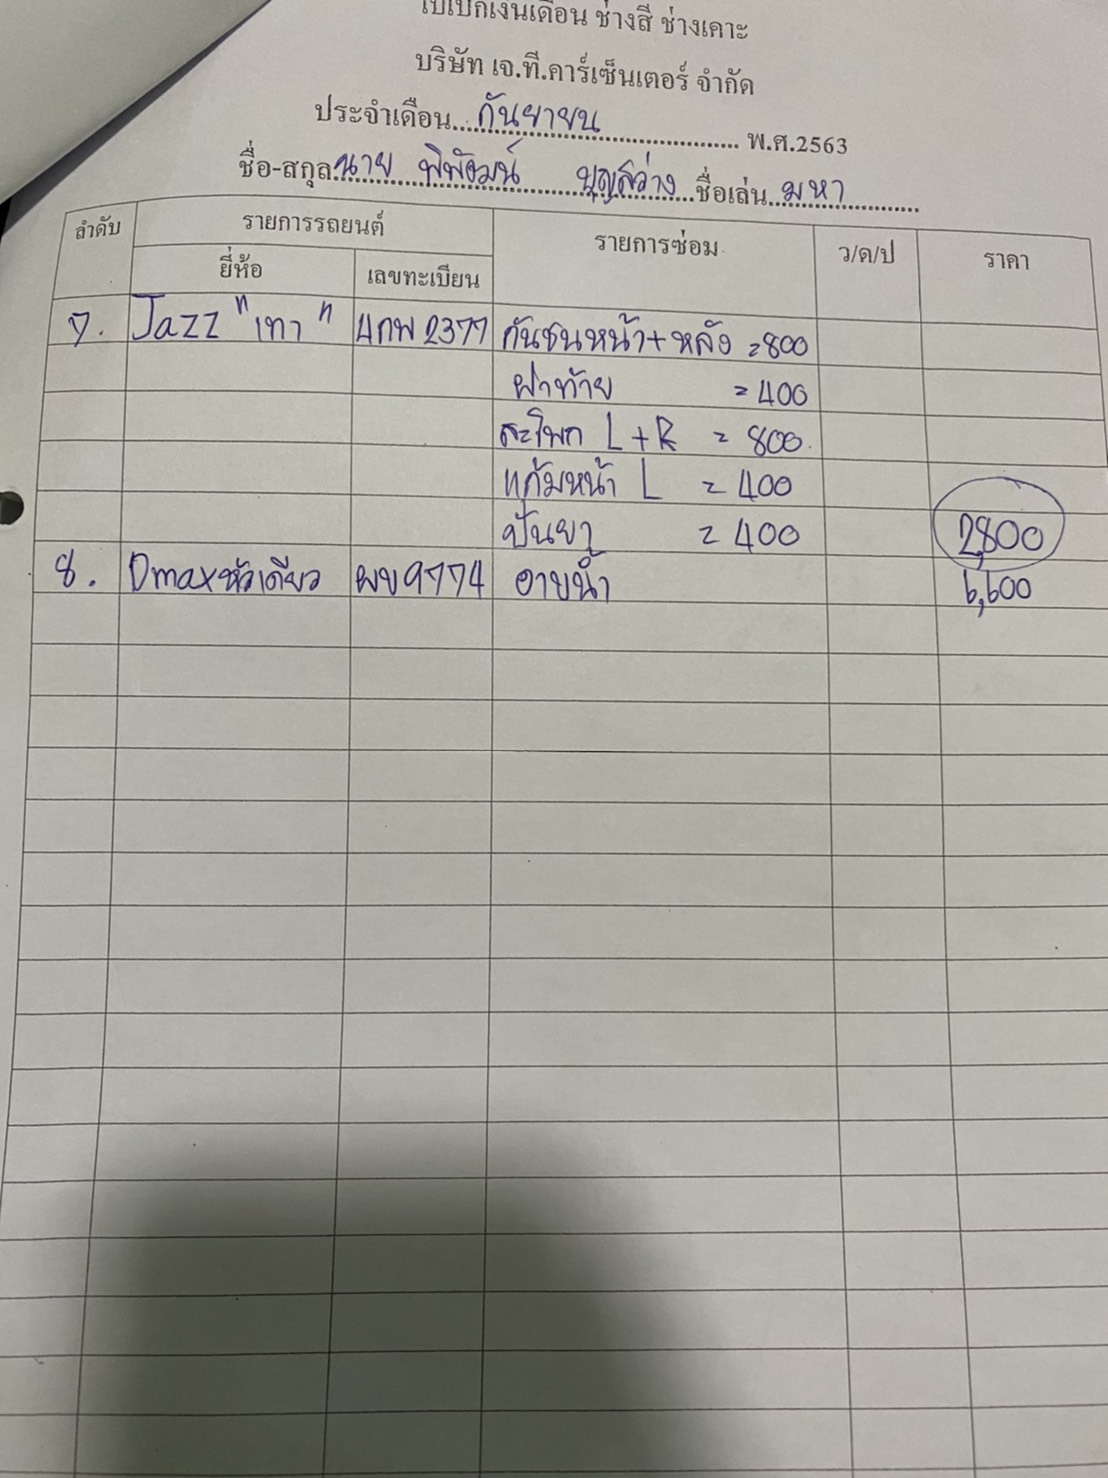 ใบเบิกเงินเดือน ช่างสี ช่างเคาะ
บริษัท เจ.ที.คาร์เซ็นเตอร์ จำกัด
ประจำเดือน...กันยายน... พ.ศ.2563
ชื่อ-สกุล.นาย บุญสว่าง ชื่อเล่น..มหา
ลำดับ รายการรถยนต์ รายการซ่อม ว/ด/ป ราคา
ยี่ห้อ เลขทะเบียน
7. Jazz "เทา" 4กพ 2377 กันชนหน้า+หลัง =800
ฝาท้าย =400
สะโพก L+R = 800
แก้มหน้า L = 400
ปั่นยา = 400 2,800
8. Dmaxหัวเดียว ผข9774 อาบน้ำ 6,600